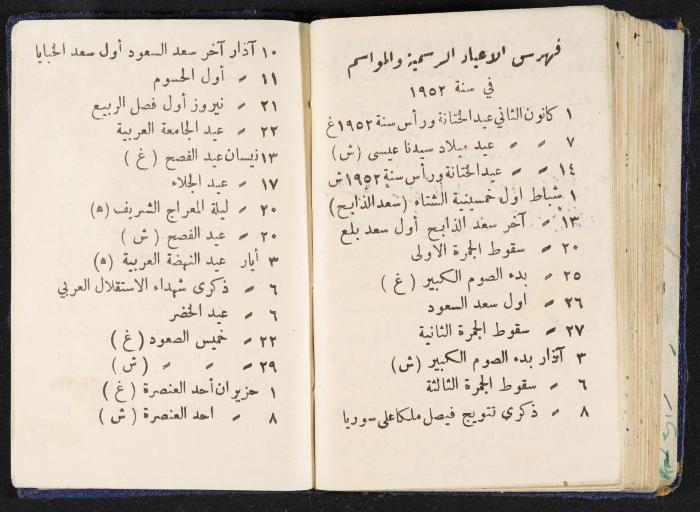 فهرس الاعياد الرسمية والمواسم
في سنة ١٩٥٢
١ كانون الثاني عيد الختانة ورأس سنة ١٩٥٢ غ
٧ " " عيد ميلاد سيدنا عيسى (ش)
١٤ " " عيد الختانة ورأس سنة ١٩٥٢ ش
١ شباط اول خمسينية الشتاء (سعد الذابح)
١٣ " آخر سعد الذابح أول سعد بلع
٢٠ " سقوط الجمرة الاولى
٢٥ " بدء الصوم الكبير (غ)
٢٦ " اول سعد السعود
٢٧ " سقوط الجمرة الثانية
٣ آذار بدء الصوم الكبير (ش)
٦ " سقوط الجمرة الثالثة
٨ " ذكرى تتويج فيصل ملكا على سوريا
١٠ آذار آخر سعد السعود أول سعد الخبايا
١١ " أول الحسوم
٢١ " نيروز أول فصل الربيع
٢٢ " عيد الجامعة العربية
١٣ نيسان عيد الفصح (غ)
١٧ " عيد الجلاء
٢٠ " ليلة المعراج الشريف (ه)
٢٠ " عيد الفصح (ش)
٣ أيار عيد النهضة العربية (ه)
٦ " ذكرى شهداء الاستقلال العربي
٦ " عيد الخضر
٢٢ " خميس الصعود (غ)
٢٩ " " " (ش)
١ حزيران أحد العنصرة (غ)
٨ " احد العنصرة (ش)